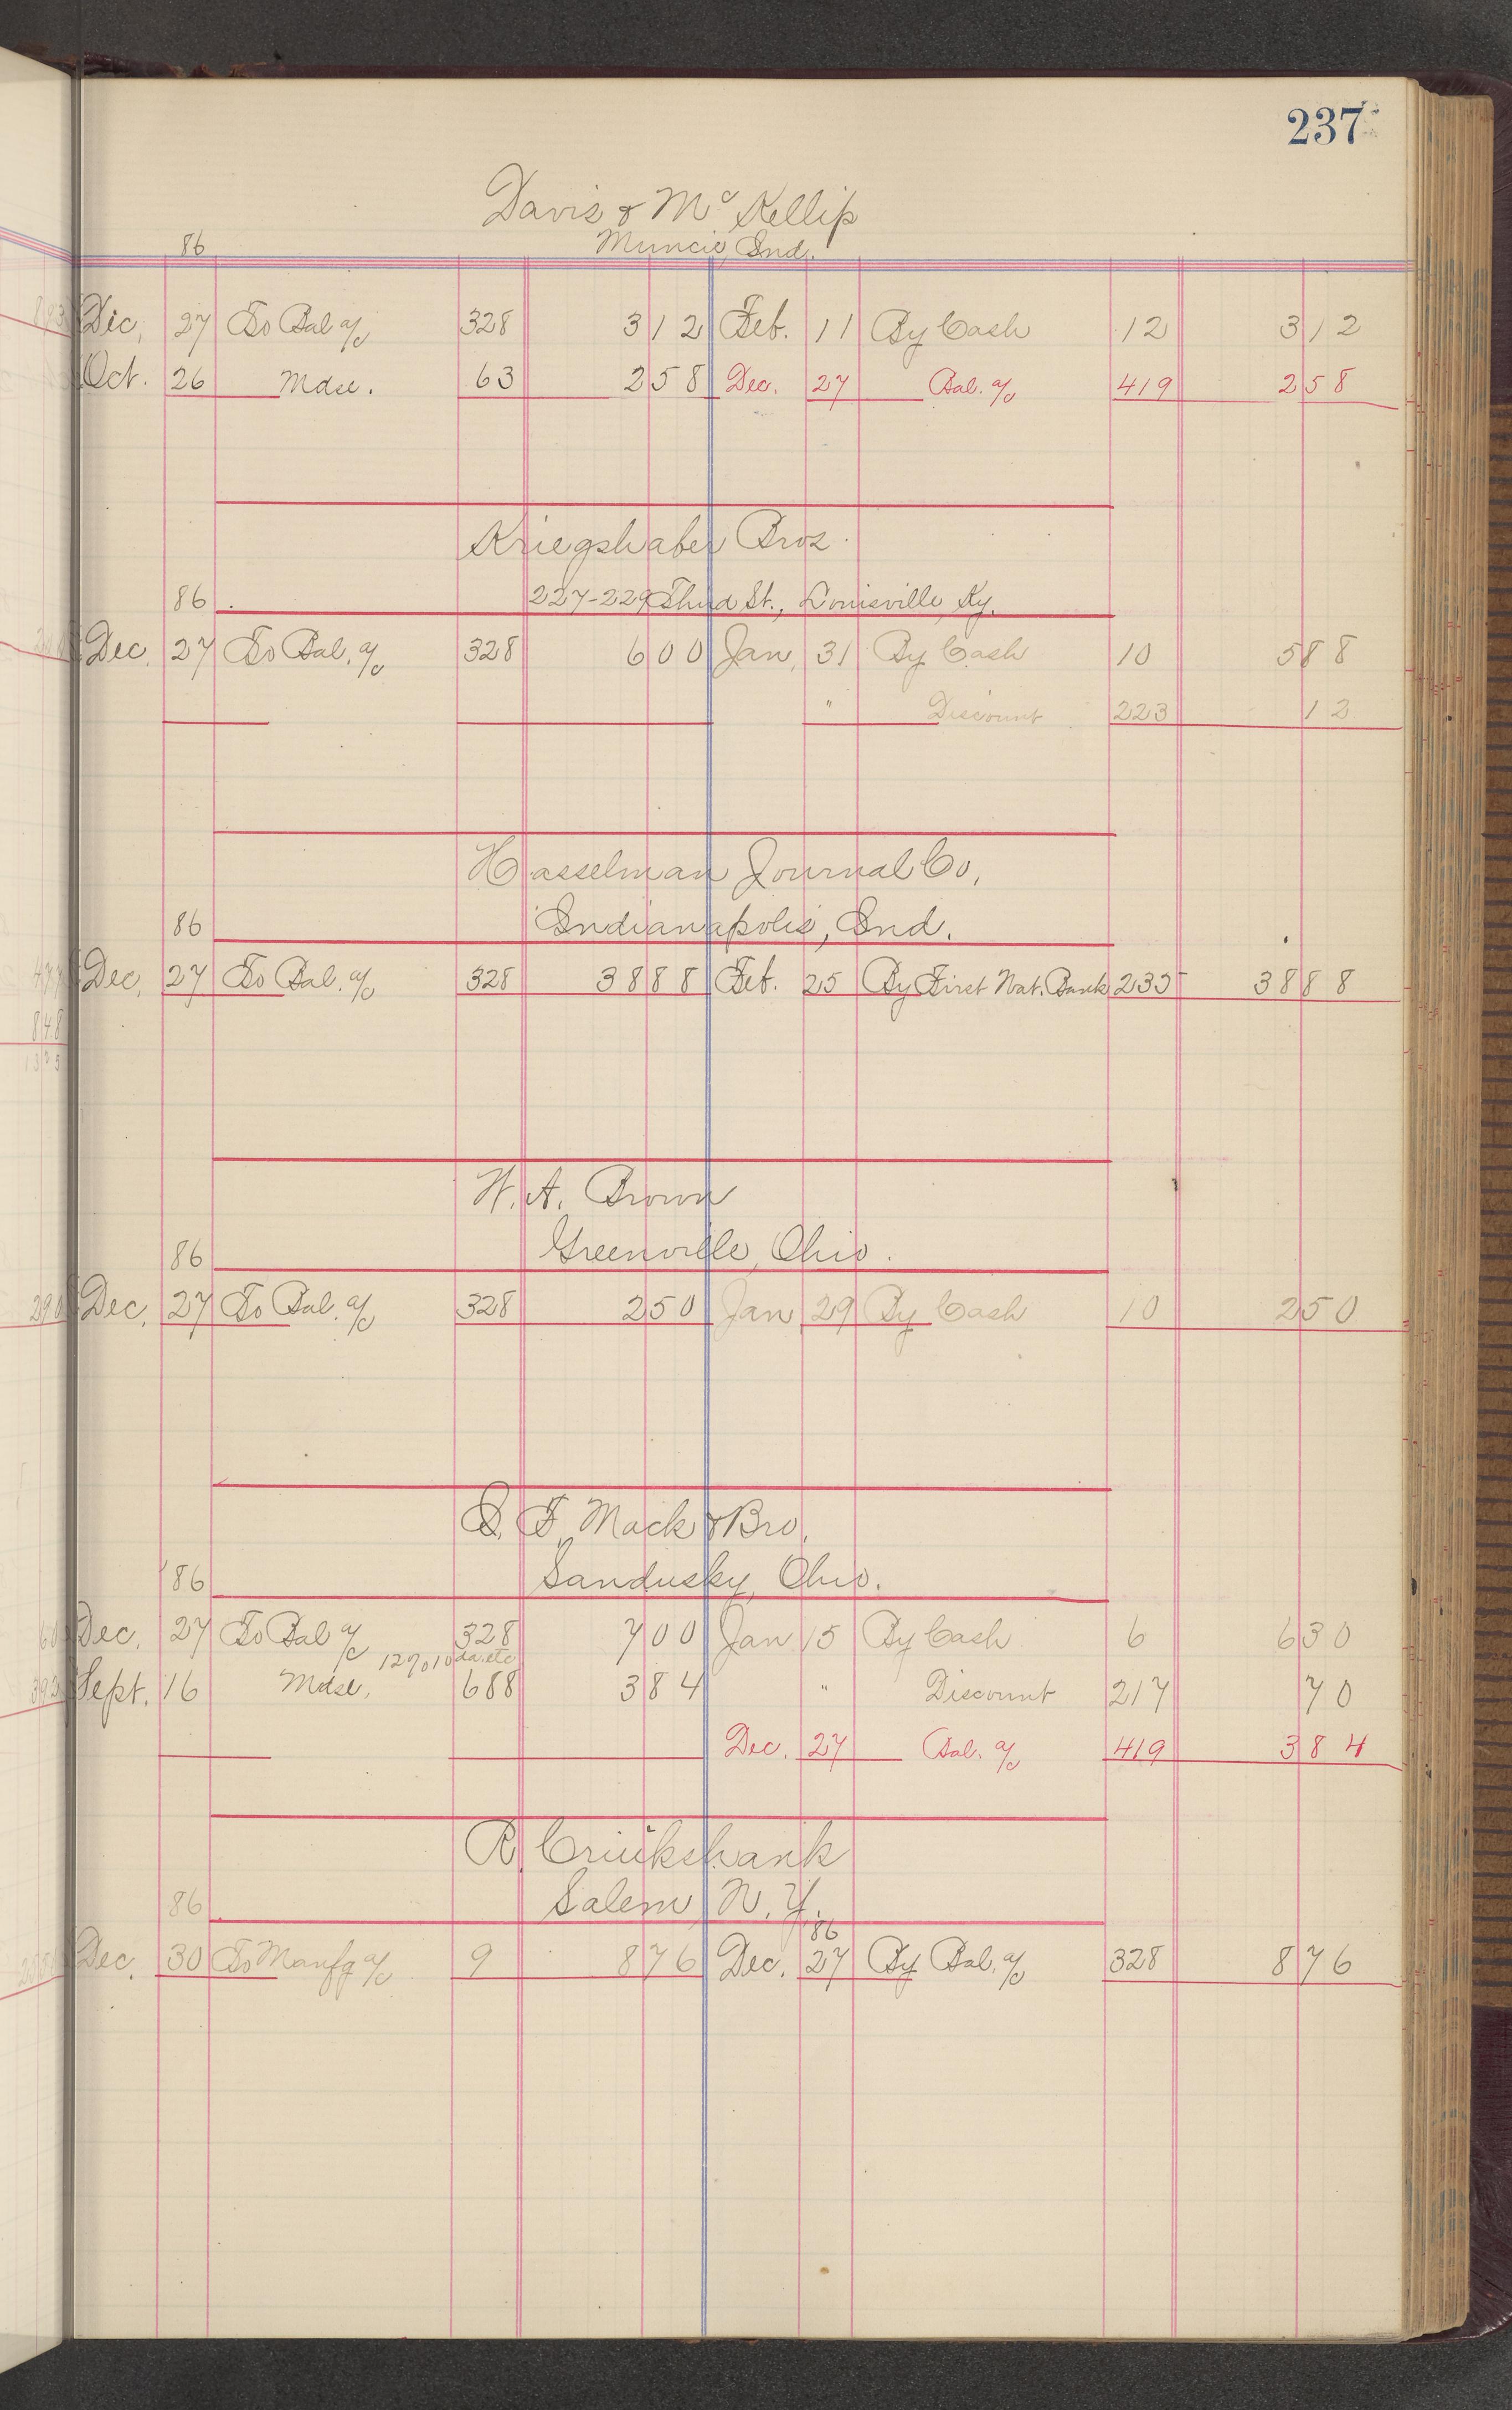 237
Davis & McKellip
86 Muncie, Ind.
Dec. 27 To Bal a/c 328 312 Feb. 11 By Cash 12 312
Oct. 26 Mdse. 63 258 Dec. 27 Bal. a/c 419 258
Kriegshaber Bros.
86 227-229 Third St., Louisville, Ky.
Dec. 27 To Bal. a/c 328 600 Jan. 31 By Cash 10 588
" Discount 223 12
Hasselman Journal Co,
86 Indianapolis, Ind.
Dec, 27 To Bal. a/c 328 3888 Feb. 25 By First Nat. Bank 235 3888
W. A. Brown
86 Greenville, Ohio.
Dec, 27 To Bal. a/c 328 250 Jan 29 By Cash 10 250
I. F. Mack & Bro.
'86 Sandusky, Ohio.
Dec. 27 To Bal a/c 328 700 Jan 15 By Cash 6 630
Sept. 16 Mdse. 688 384 " Discount 217 70
Dec. 27 Bal. a/c 419 384
R. Cruikshank
86 Salem, N. Y.
'86
Dec. 30 To Manfg a/c 9 876 Dec. 27 By Bal. a/c 328 876